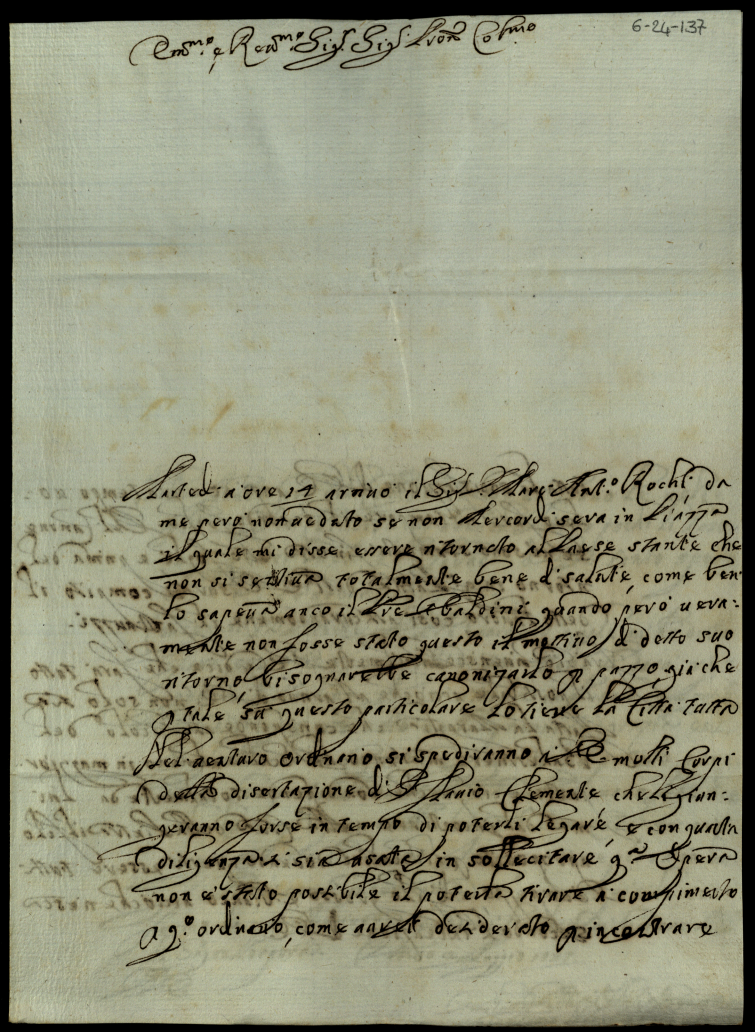 6-24-137
Em.mo e Reu.mo Sig.r Sig.r Pron Col.mo
Martedi a ore 14 arriuò il Sig.r Marc' Ant.o Rochi da
me però non uedato se non Mercordi sera in Piazza
il quale mi disse essere ritornato al Paese stante che
non si sentiua totalmente bene di salute, come ben
lo sapeua anco il Pre Ubaldini quando però uera-
mente non fosse stato questo il mottiuo di detto suo
ritorno bisognarebbe canonizarlo p pazzo, gia che
p tale su questo particolare lo tiene la Città tutta
Nel uenturo ordinario si spediranno a molti Corpi
della disertazione di Flauio Clemente che li giun-
geranno forse in tempo di poterli legare, e con quata
diligenza si sia usata in sollecitare q.a Opera
non è stato possibile il poterla tirare a compimento
p q.o ordinario, come aurei desiderato p incontrare